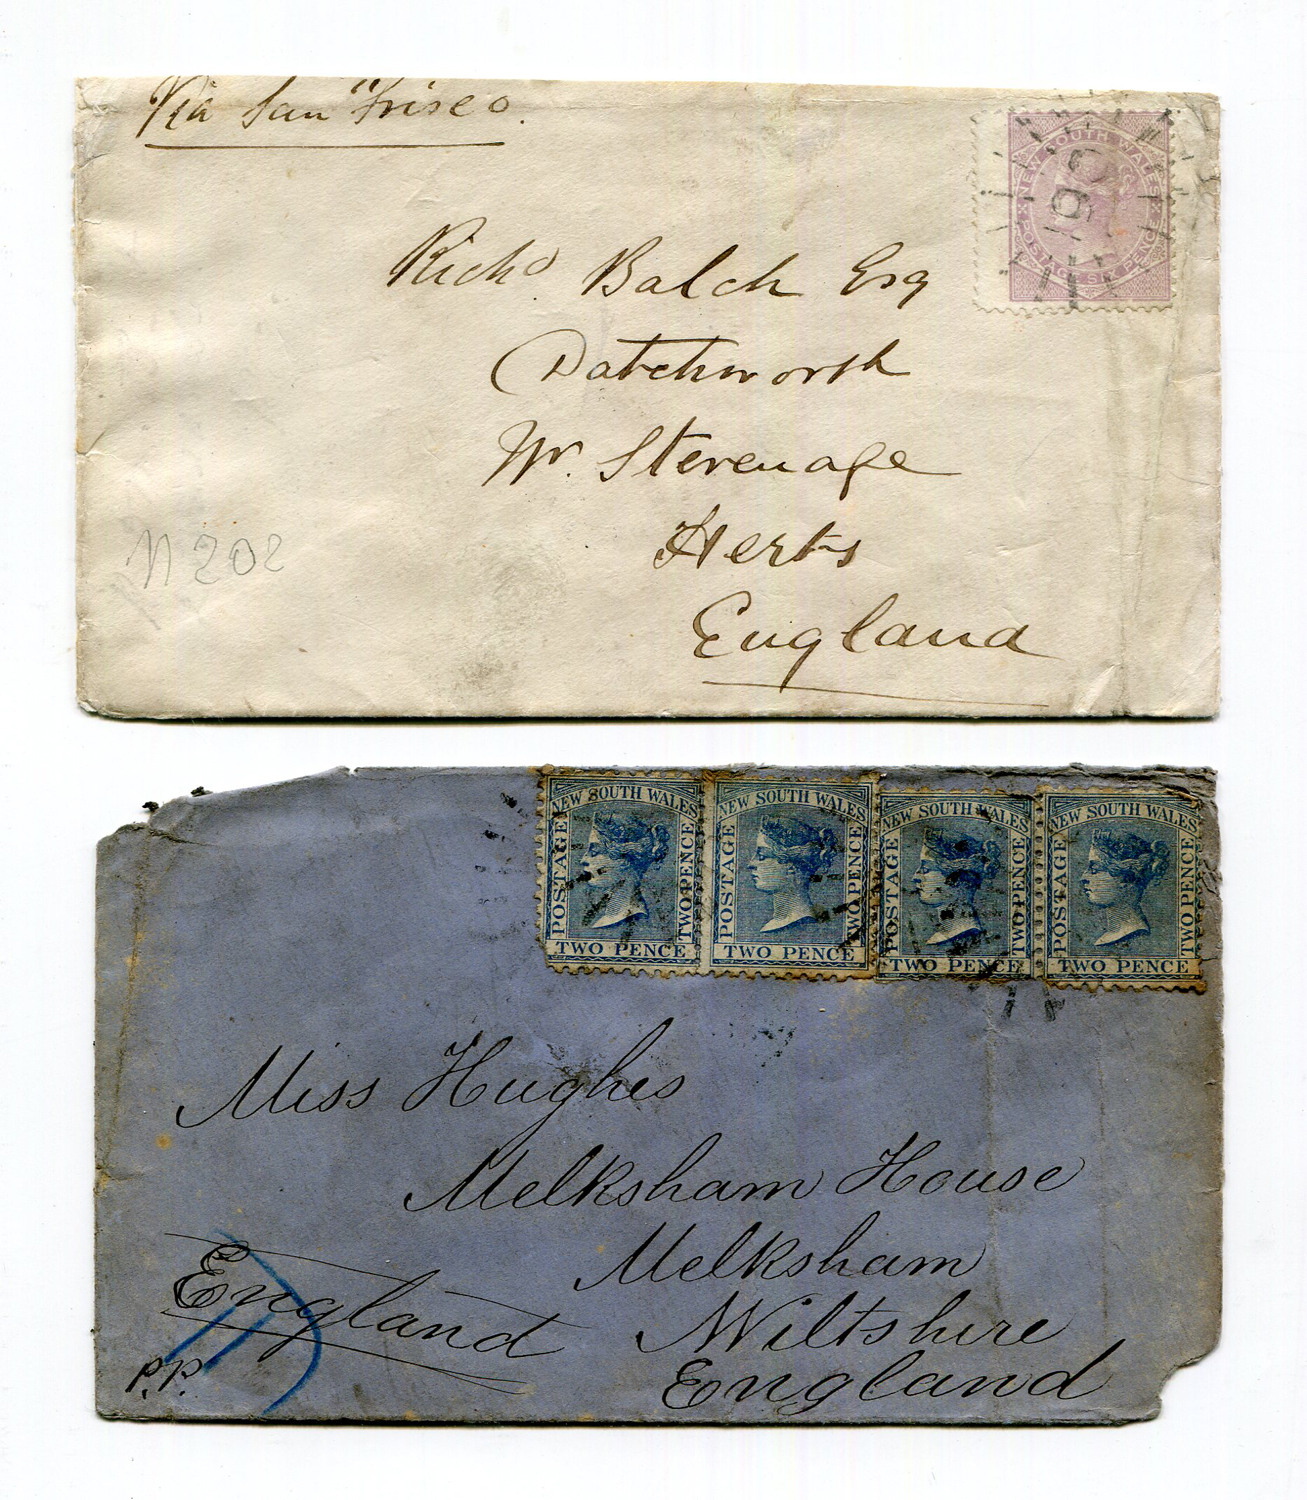 Via San "Frisco.
NEW SOUTH WALES
POSTAGE SIX PENCE
Richd Balch Esq
Datchworth
Nr. Stevenage
Herts
England
N 202
NEW SOUTH WALES
POSTAGE
TWO PENCE
TWO PENCE
NEW SOUTH WALES
POSTAGE
TWO PENCE
TWO PENCE
NEW SOUTH WALES
POSTAGE
TWO PENCE
TWO PENCE
NEW SOUTH WALES
POSTAGE
TWO PENCE
TWO PENCE
Miss Hughes
Melksham House
Melksham
Wiltshire
England
England
P.P.